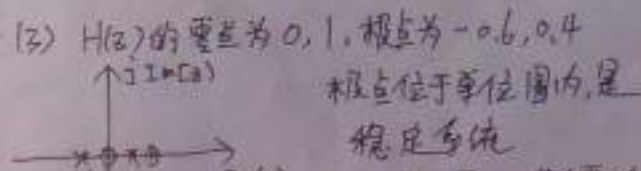 (3) H(z)的零点为0,1,极点为-0.6,0.4
jIm[z]
极点位于单位圆内,是
稳定系统